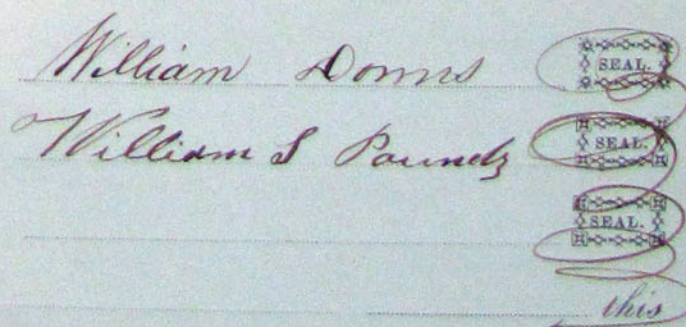 William Downs SEAL.
William S Pounds SEAL.
SEAL.
this